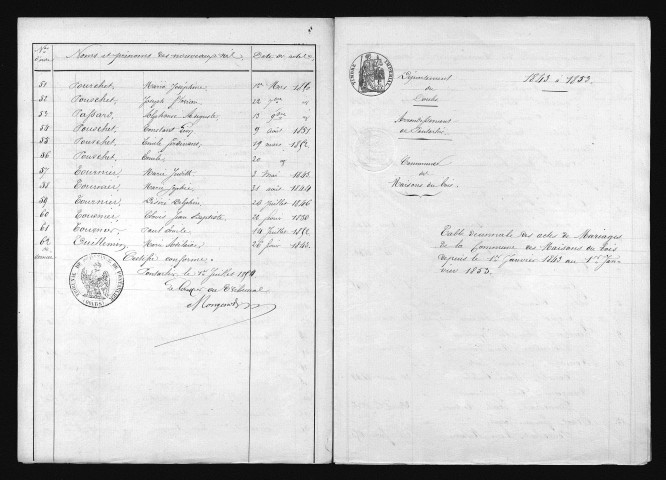 Nos
Noms et prénoms des nouveaux nés
Date des actes
51 Pourchet, Marie Joséphine 1er Mars 1850
52 Pourchet, Joseph 22 "
53 Passard, Alphonse Auguste 13 "
54 Pourchet, Constant 9 août 1851
55 Pourchet, Emile 19 mars 1852
56 Pourchet, Emile 20 "
57 Tournier, Marie Judith 3 Mai 1843
58 Tournier, Marie 31 août 1844
59 Tournier, Delphin 26 Juillet 1846
60 Tournier, Louis Jean Baptiste 1850
61 Tournier, Paul 14 Juillet 1852
62 Guillemin, Marie 26 Juin 1843
Certifié conforme.
Pontarlier le 1er Juillet
Le Greffier du Tribunal
1843 à 1853.
Département
du
Doubs
Arrondissement
de Pontarlier
Commune
de
Maisons du bois.
Table décennale des actes de Mariages
de la Commune des Maisons du bois
depuis le 1er Janvier 1843 au 1er Jan-
vier 1853.